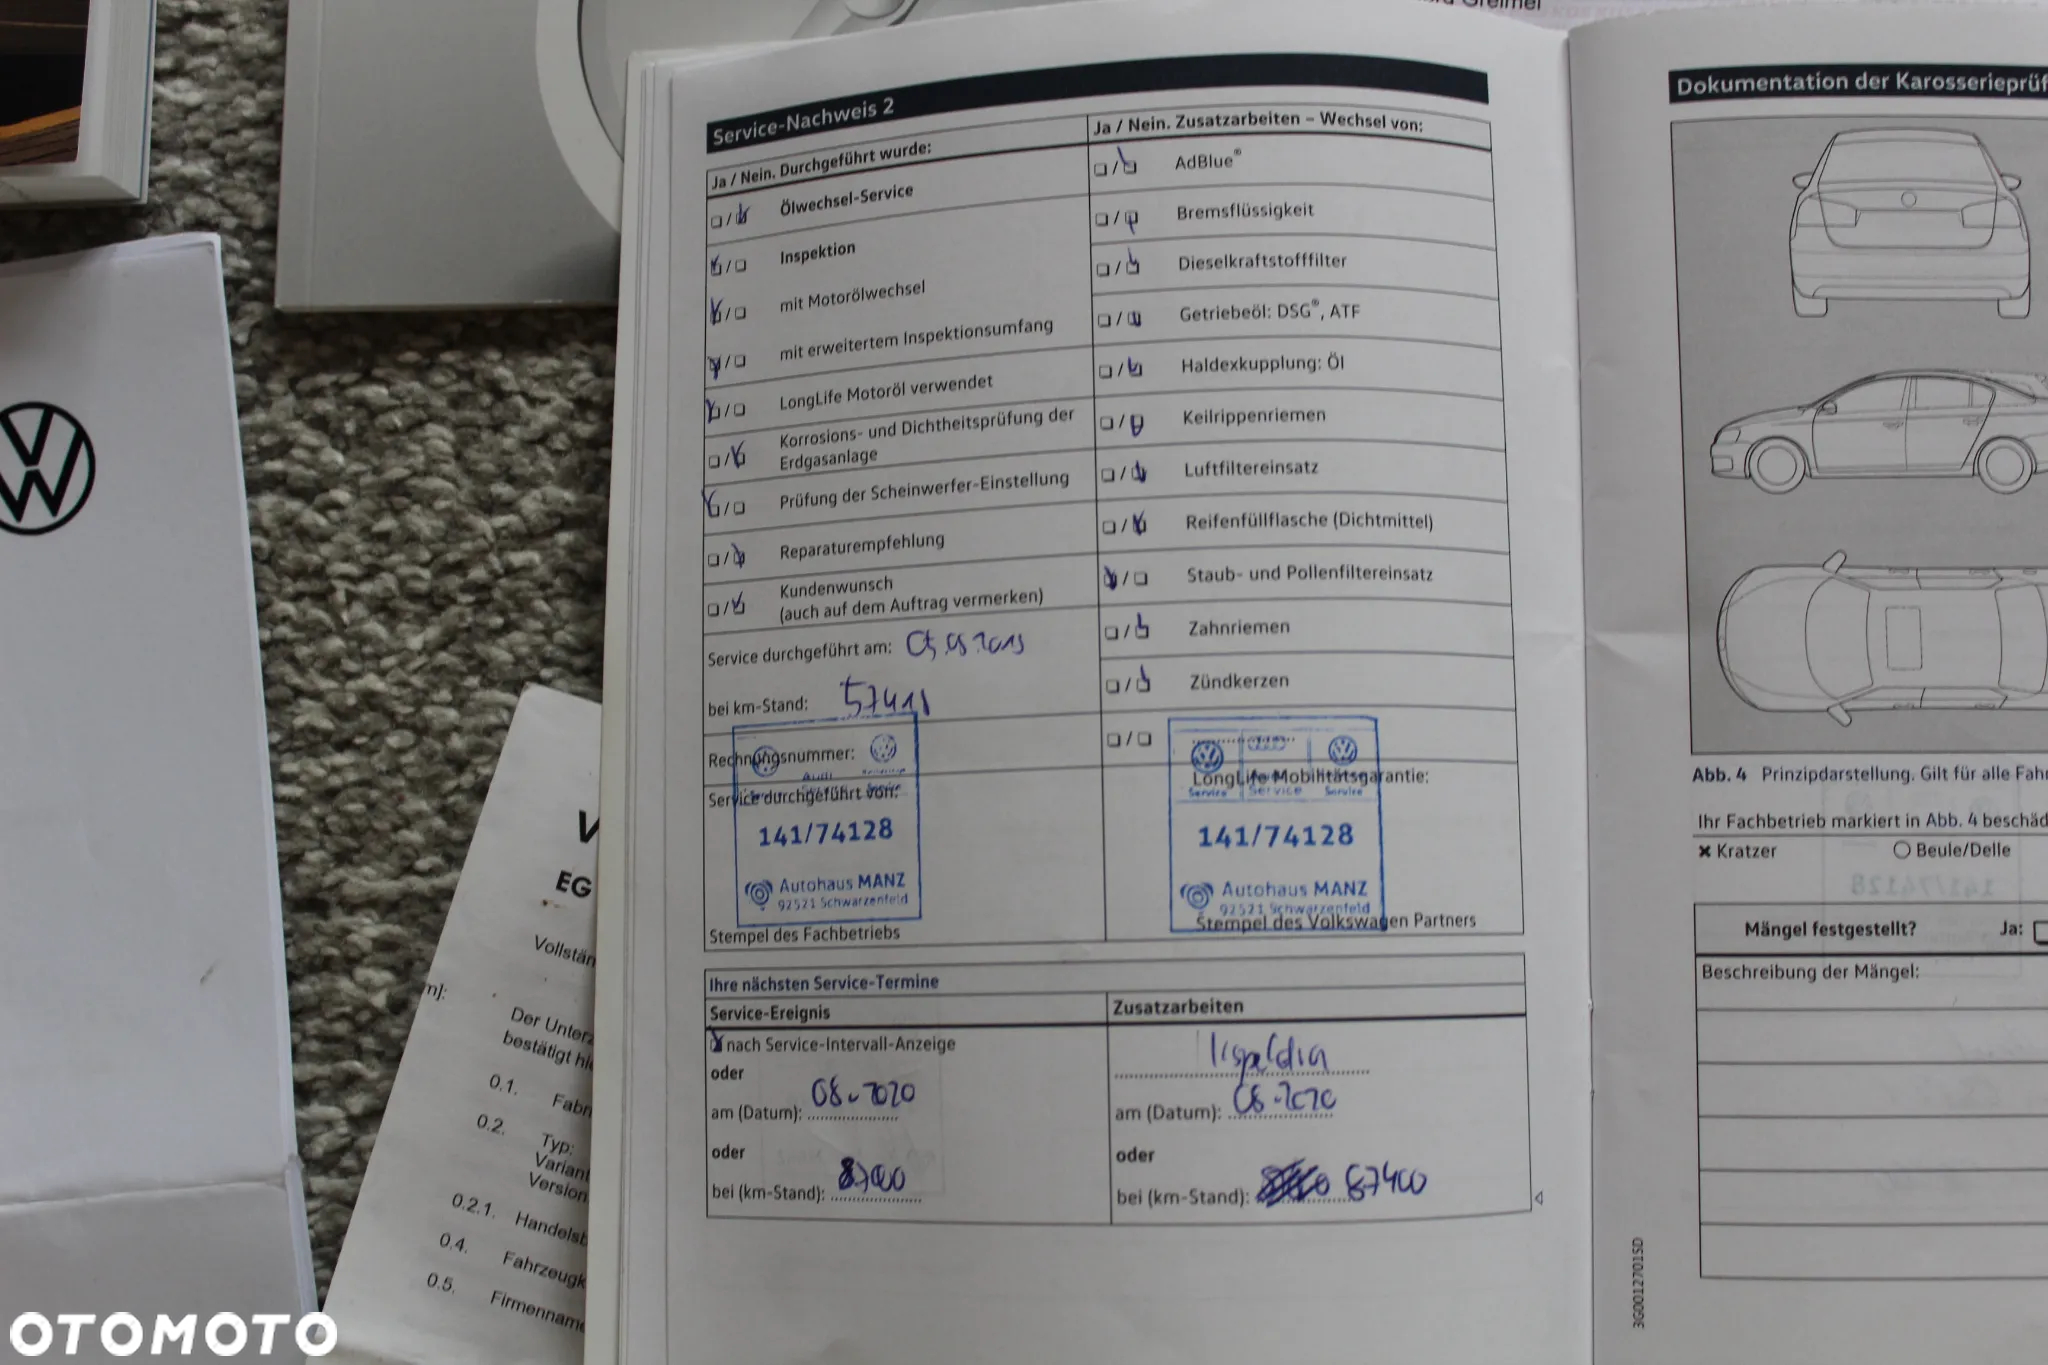 Service-Nachweis 2
Ja / Nein. Durchgeführt wurde:
Ölwechsel-Service
Inspektion
mit Motorölwechsel
mit erweitertem Inspektionsumfang
LongLife Motoröl verwendet
Korrosions- und Dichtheitsprüfung der
Erdgasanlage
Prüfung der Scheinwerfer-Einstellung
Reparaturempfehlung
Kundenwunsch
(auch auf dem Auftrag vermerken)
Service durchgeführt am:
bei km-Stand: 57411
Rechnungsnummer:
Service durchgeführt von:
141/74128
Autohaus MANZ
92521 Schwarzenfeld
Stempel des Fachbetriebs
Ja / Nein. Zusatzarbeiten – Wechsel von:
AdBlue®
Bremsflüssigkeit
Dieselkraftstofffilter
Getriebeöl: DSG®, ATF
Haldexkupplung: Öl
Keilrippenriemen
Luftfiltereinsatz
Reifenfüllflasche (Dichtmittel)
Staub- und Pollenfiltereinsatz
Zahnriemen
Zündkerzen
LongLife Mobilitätsgarantie:
Service Service Service
141/74128
Autohaus MANZ
92521 Schwarzenfeld
Stempel des Volkswagen Partners
Ihre nächsten Service-Termine
Service-Ereignis
nach Service-Intervall-Anzeige
oder
am (Datum): 08.2020
oder
bei (km-Stand):
Zusatzarbeiten
am (Datum): 08.2020
oder
bei (km-Stand): 87400
Dokumentation der Karosserieprüf
Abb. 4 Prinzipdarstellung. Gilt für alle Fah
Ihr Fachbetrieb markiert in Abb. 4 beschäd
Kratzer
Beule/Delle
Mängel festgestellt? Ja:
Beschreibung der Mängel:
3G0012701SD
EG
Vollstän
m]:
Der Unterz
bestätigt hi
0.1. Fabr
0.2. Typ:
Variant
Version
0.2.1. Handelsb
0.4. Fahrzeugk
0.5. Firmenname
OTOMOTO